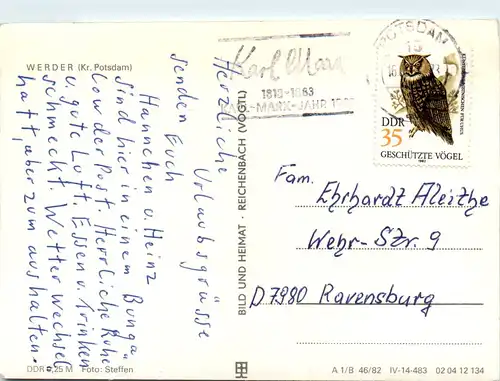 WERDER (Kr. Potsdam)
Herzliche
Urlaubsgrüsse
senden Euch
Hannchen u. Heinz
sind hier in einem Bunga
low der Post. Herrliche Ruhe
u. gute Luft. Essen u. Trinken
schmeckt. Wetter Wechsel
haft, aber zum aushalten.
DDR 0,25 M Foto: Steffen
BILD UND HEIMAT · REICHENBACH (VOGTL)
Karl Marx
1818-1983
KARL-MARX-JAHR
POTSDAM
15
DDR
35
GESCHÜTZTE VÖGEL
1982
Fam.
Ehrhardt Aleithe
Wehr-Szr. 9
D 7980 Ravensburg
A 1/B 46/82 IV-14-483 02 04 12 134